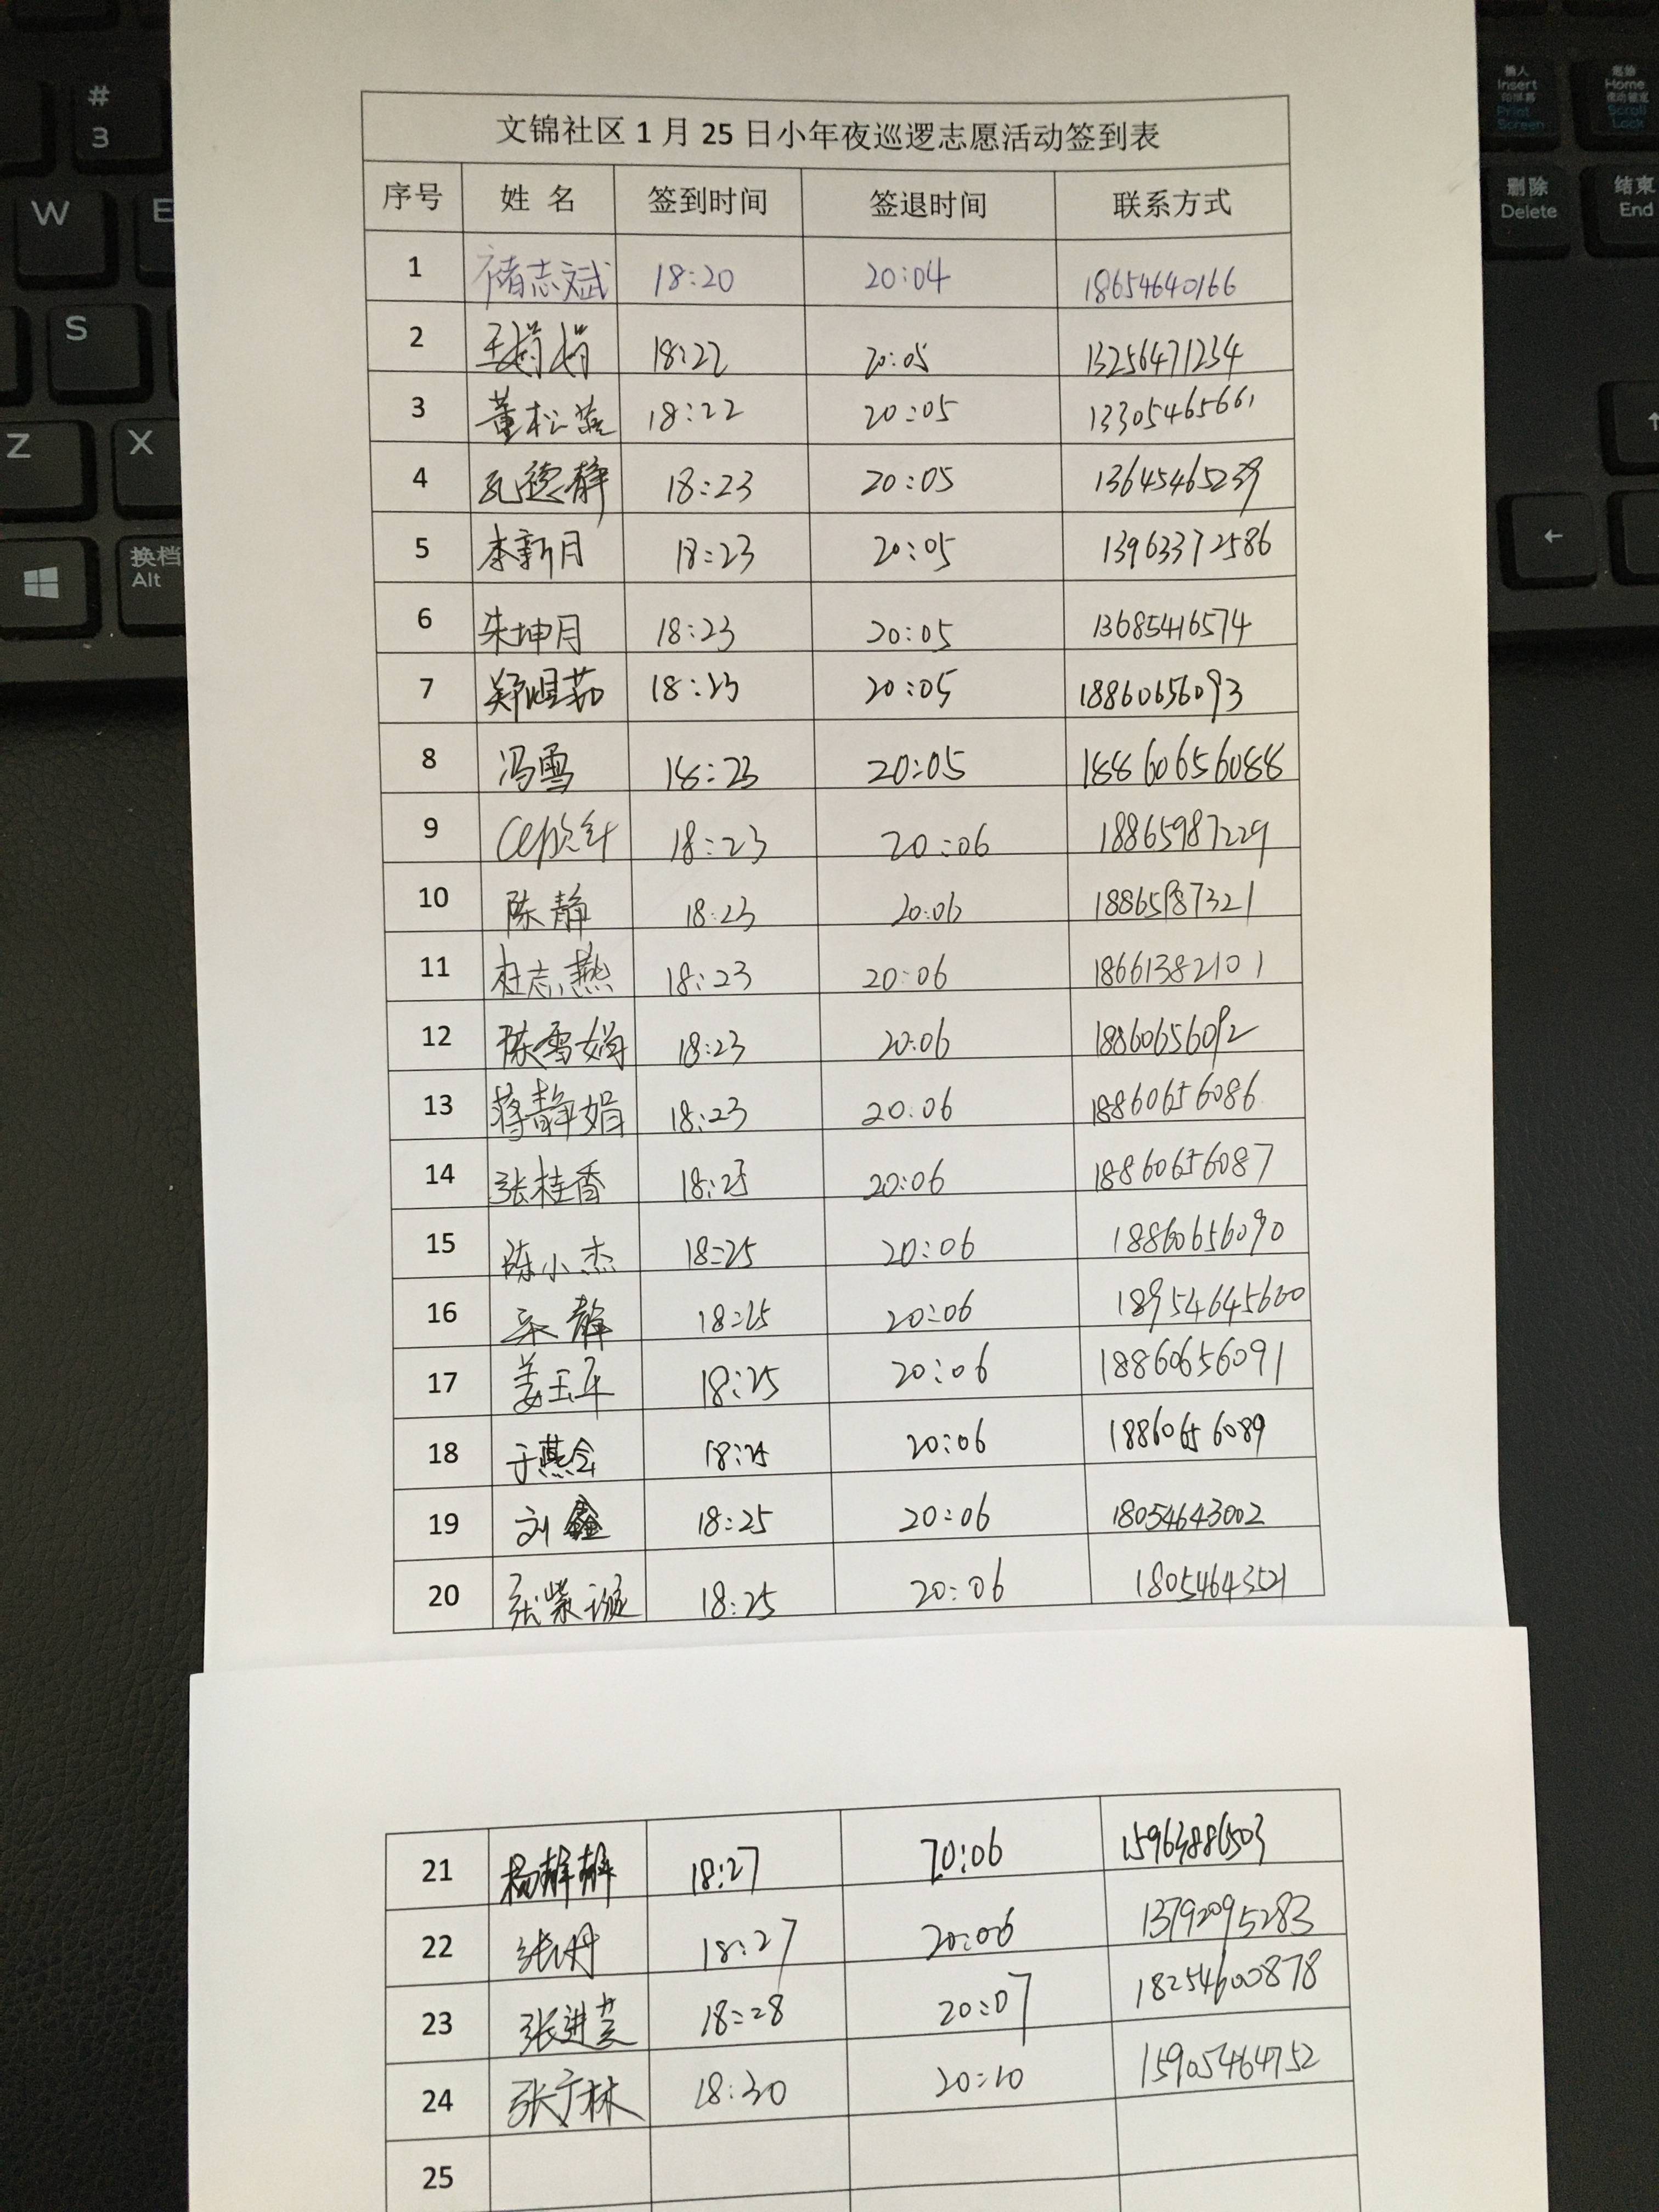 # 3
W
E
S
Z
X
换档 Alt
插入 Insert 印屏幕 Print Screen
起始 Home 滚动锁定 Scroll Lock
删除 Delete
结束 End
文锦社区1月25日小年夜巡逻志愿活动签到表
序号 姓 名 签到时间 签退时间 联系方式
1 褚志斌 18:20 20:04 18654640166
2 18:22 20:05 13256471234
3 董松 18:22 20:05 13305465661
4 孔德静 18:23 20:05 13645465239
5 李新月 18:23 20:05 13963372586
6 朱坤月 18:23 20:05 13685416574
7 18:23 20:05 18860656093
8 冯雪 18:23 20:05 18860656088
9 18:23 20:06 18865987229
10 陈静 18:23 20:06
11 杜志燕 18:23 20:06 18661382101
12 陈雪娟 18:23 20:06 18860656092
13 蒋静娟 18:23 20:06 18860656086
14 张桂香 18:25 20:06 18860656087
15 陈小杰 18:25 20:06 18860656090
16 静 18:25 20:06 18954645600
17 姜玉平 18:25 20:06 18860656091
18 于燕会 18:25 20:06 18860656089
19 刘鑫 18:25 20:06 18054643002
20 张紫璇 18:25 20:06 18054643521
21 杨静静 18:27 20:06 15963886503
22 张丹 18:27 20:06 13792095283
23 张进 18:28 20:07 18254600878
24 张广林 18:30 20:10 15905464752
25